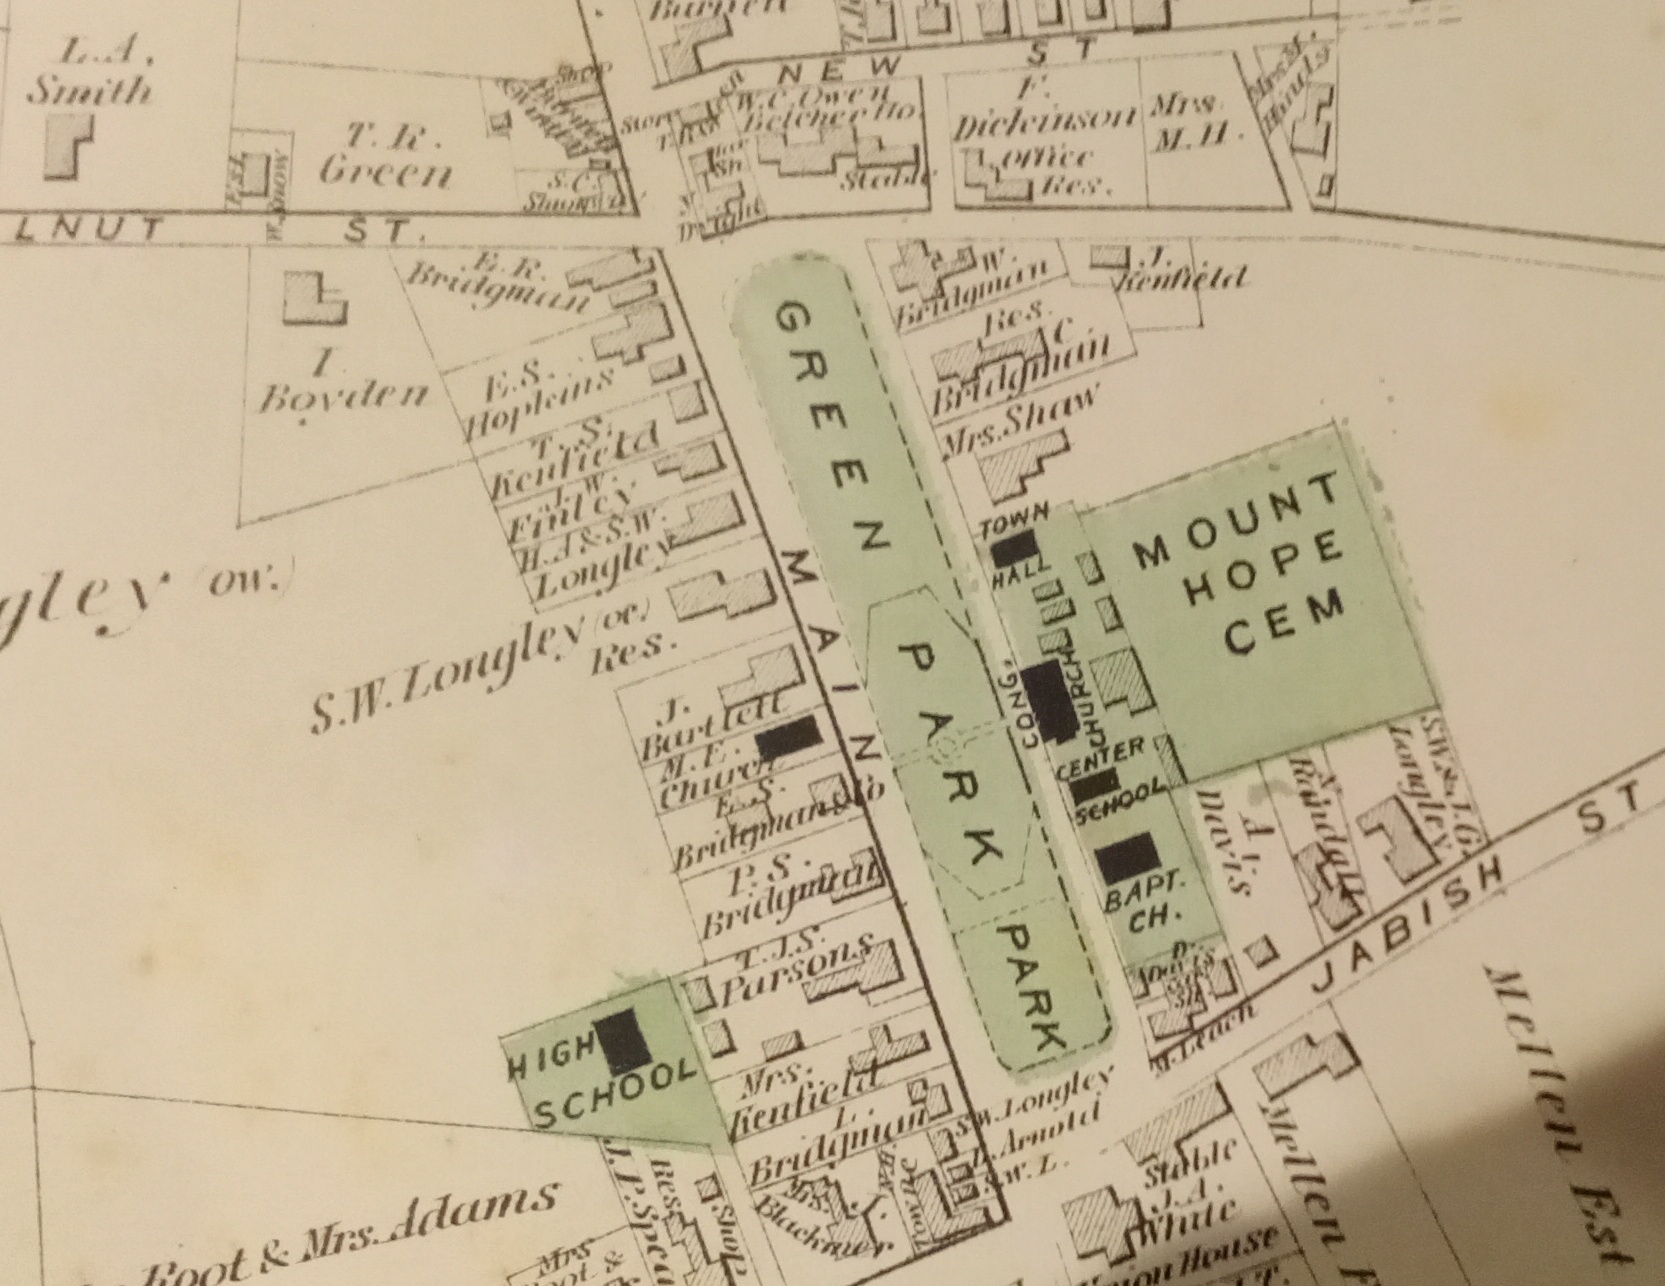 Burnett
L.A.
Smith
NEW ST
Shop
T.R.
Green
W. Snow
S.C.
Store
W.C. Owen
Belcher Ho.
Stable
F.
Dickinson
Office
Res.
Mrs.
M.H.
Dwight
LNUT ST.
E.R.
Bridgman
I.
Boyden
E.S.
Hopkins
T.S.
Kenfield
J.W.
Finley
H.J. & S.W.
Longley
gley (ow.)
S.W. Longley (oc.)
Res.
J.
Bartlett
M.E.
Church
E.S.
Bridgman
P.S.
Bridgman
T.J.S.
Parsons
HIGH
SCHOOL
Mrs.
Kenfield
L.
Bridgman
Mrs.
Blackmer
Root & Mrs. Adams
J.P. Spear
Res.
Shop
Mrs
MAIN
GREEN
PARK
PARK
W.
Bridgman
J.
Kenfield
Res.
C.
Bridgman
Mrs. Shaw
TOWN
HALL
MOUNT
HOPE
CEM
CONG.
CHURCH
CENTER
SCHOOL
BAPT.
CH.
A.
Davis
Randall
S.W. & J.G.
Longley
JABISH ST
M. Leach
S.W. Longley
L. Arnold
S.W.L.
Stable
J.A.
White
Mellen
Mellen Est